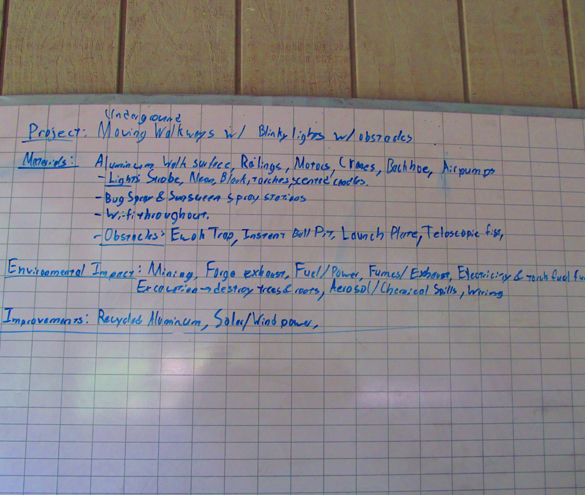 Underground
Project: Moving Walkways w/ Blinky lights w/ obstacles
Materials: Aluminum Walk surface, Railings, Motors, Cranes, Backhoe, Air pumps
- Lights Strobe, Neon, Black, torches, scented candles.
- Bug Spray & Sunscreen spray stations
- Wifi throughout.
- Obstacles: Ewok Trap, Instant Ball Pit, Launch Plate, Telescopic fist,
Environmental Impact: Mining, Forge exhaust, Fuel/Power, Fumes/Exhaust, Electricity & torch fuel
Excavation → destroy trees & roots, Aerosol/Chemical Spills, Wiring
Improvements: Recycled Aluminum, Solar/Wind power,